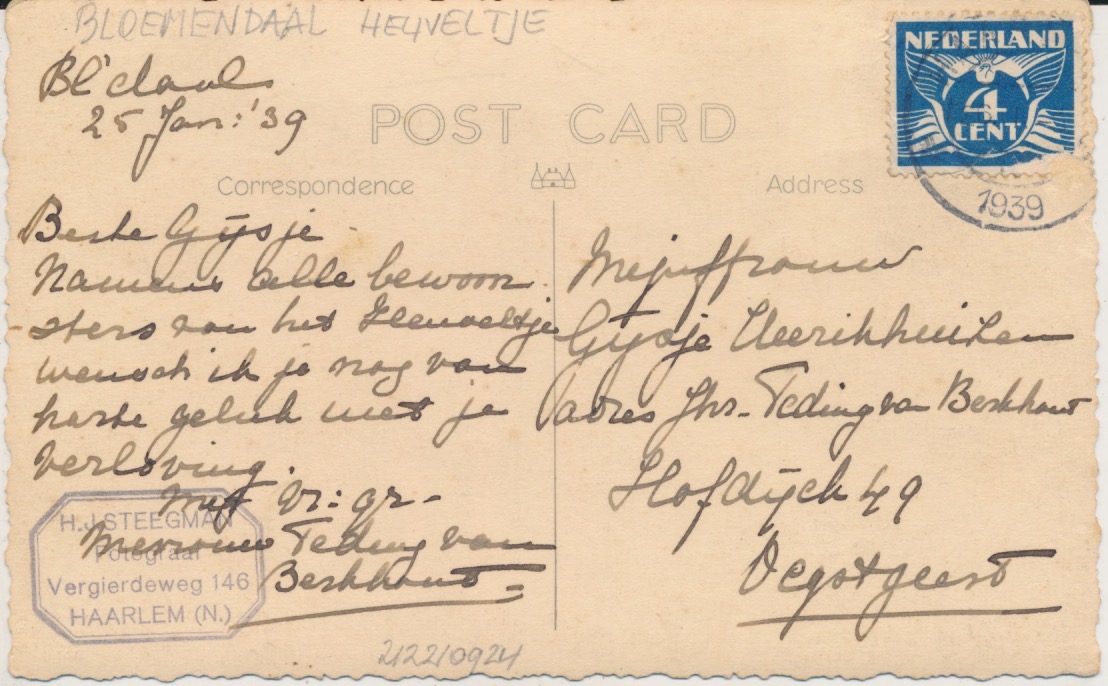 BLOEMENDAAL HEUVELTJE
Bl'daal
25 Jan: '39
POST CARD
NEDERLAND
4
CENT
1939
Correspondence
Address
Beste Gijsje
Namens alle bewoon
-sters van het Heuveltje
wensch ik je nog van
harte geluk met je
verloving.
Met Vr: gr-
Mevrouw Teding van
Berkhout
H.J. STEEGMAN
Fotograaf
Vergierdeweg 146
HAARLEM (N.)
Mejuffrouw
Gijsje
adres Jhr. Teding van Berkhout
Hofdijck 49
Oegstgeest
212210924